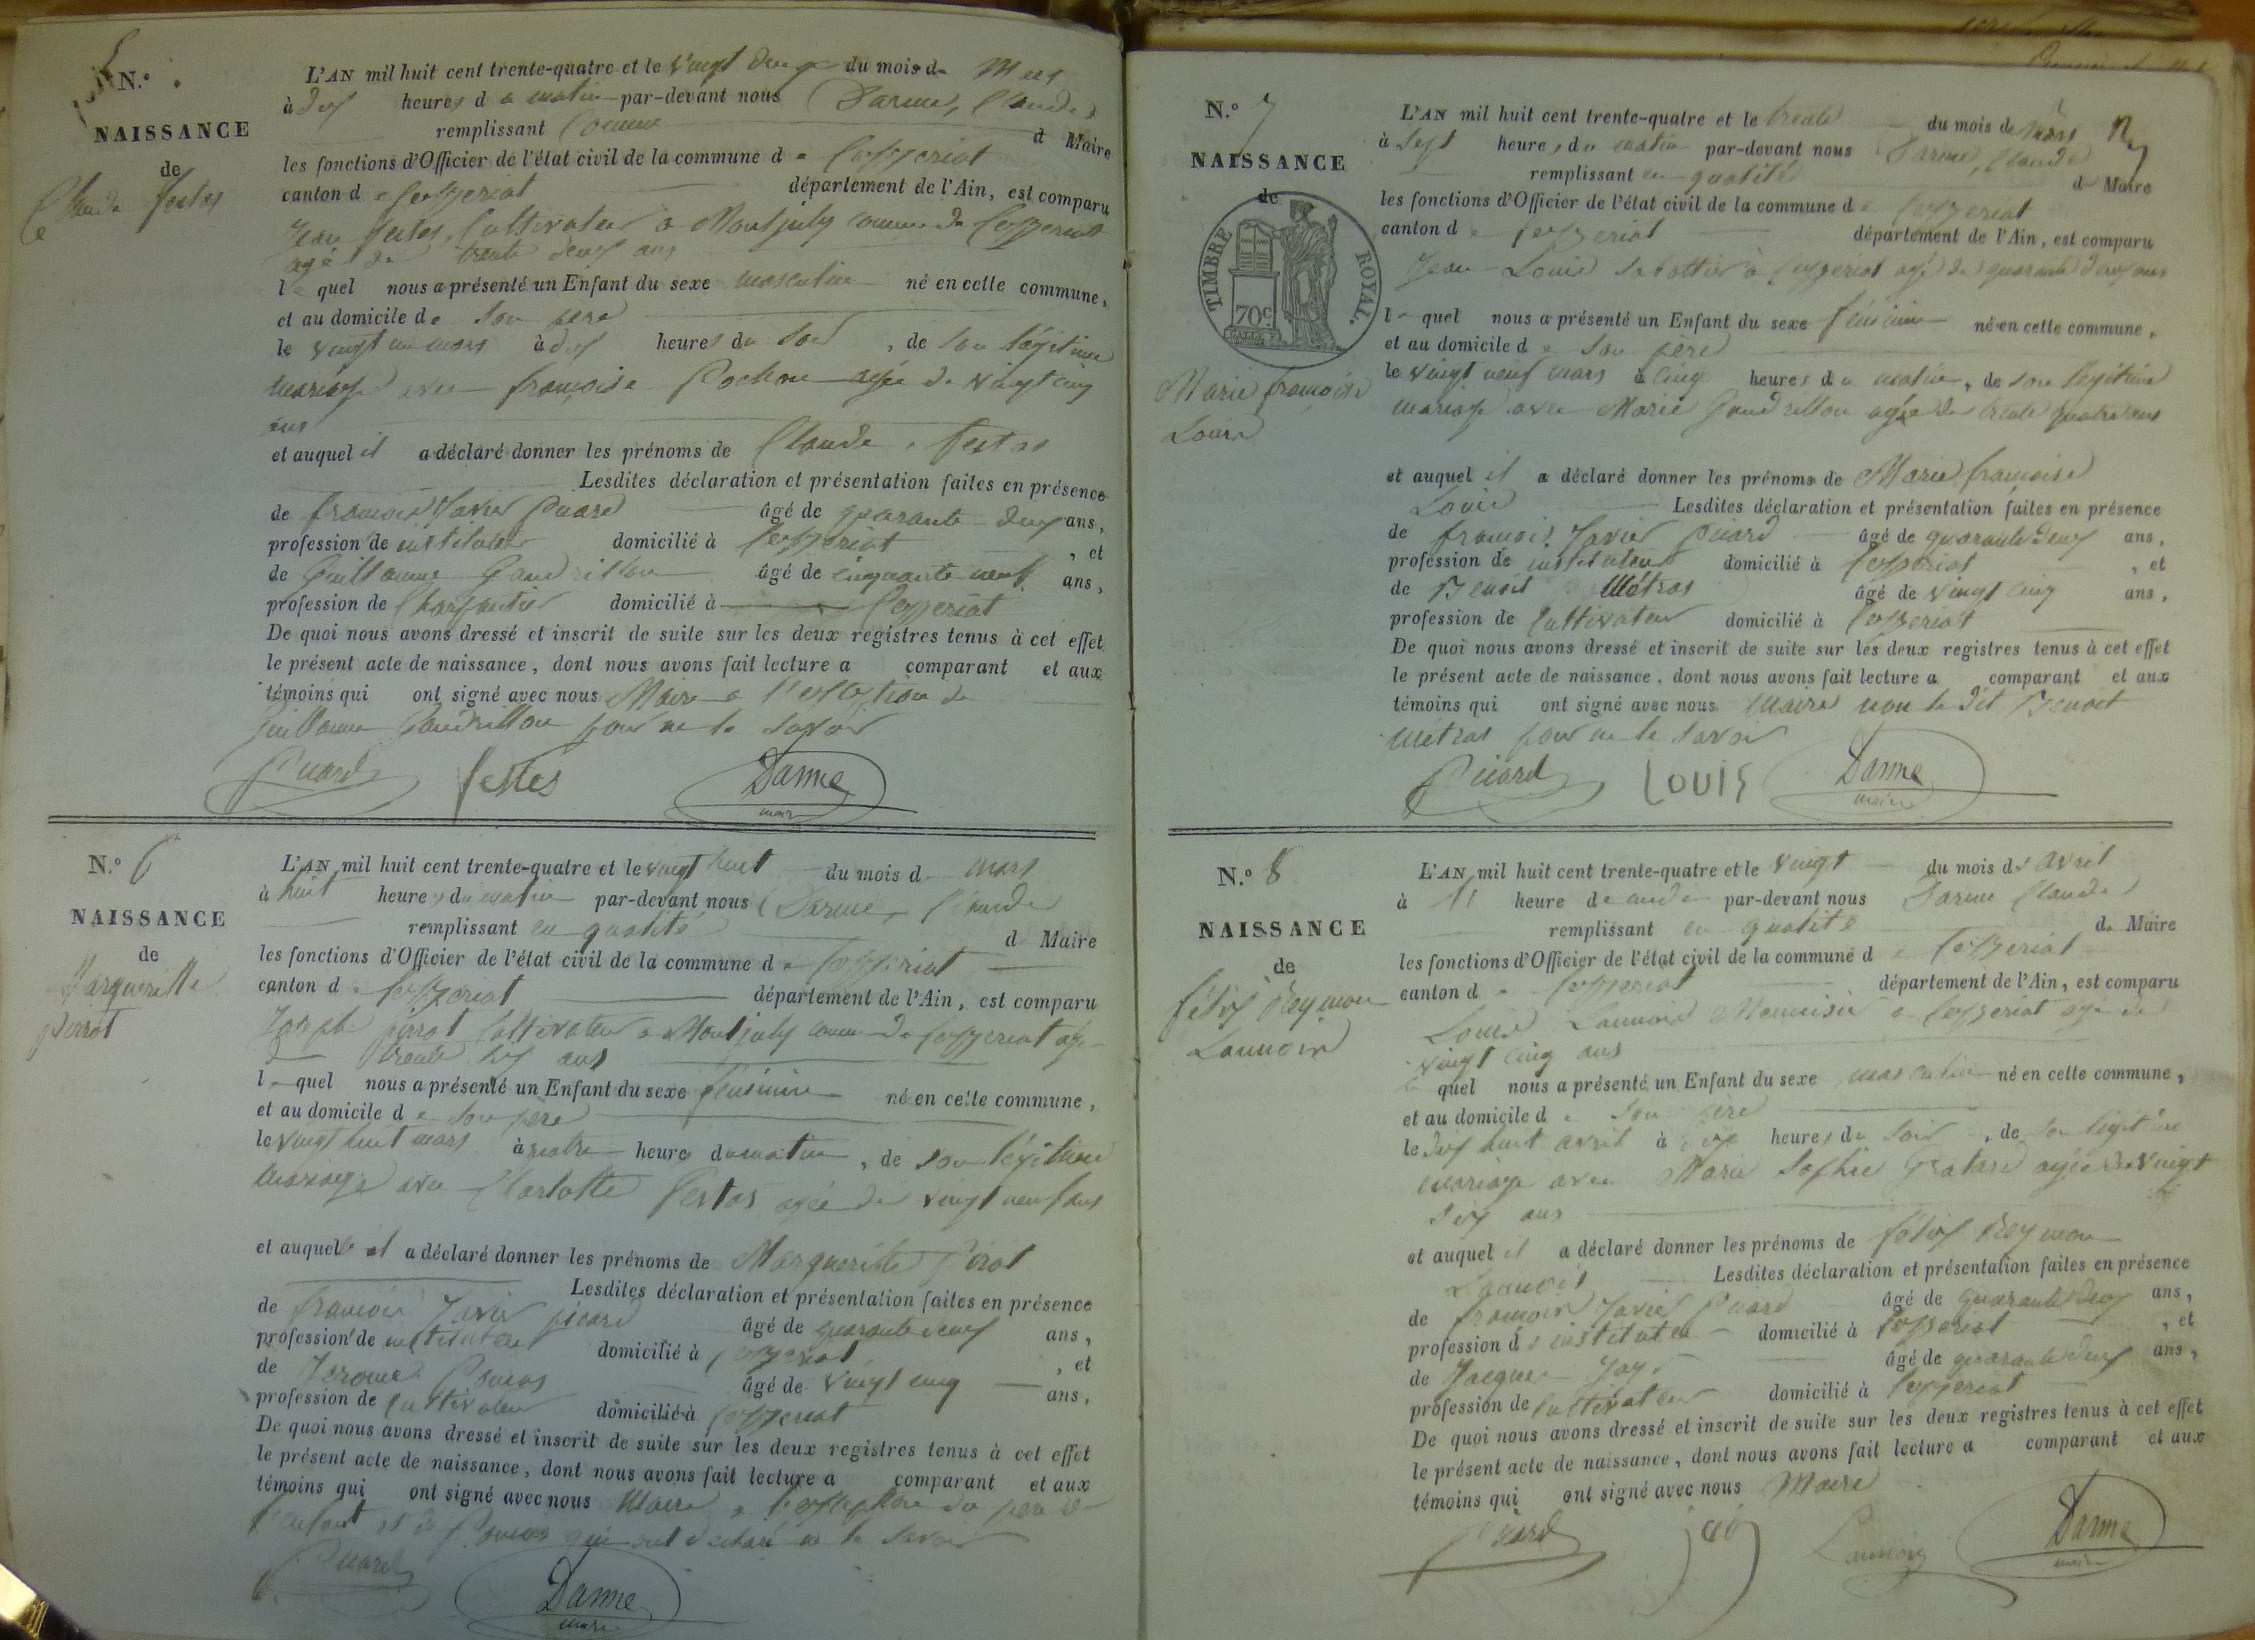 N.º 5
NAISSANCE
de
Claude festes
L'AN mil huit cent trente-quatre et le vingt deux du mois de Mars
à dix heures du matin par-devant nous Darme, Claude
remplissant comme d Maire
les fonctions d'Officier de l'état civil de la commune de Ceyzeriat
canton de Ceyzeriat département de l'Ain, est comparu
Jean festes, Cultivateur à Montjuly commune de Ceyzeriat
agé de trente deux ans
le quel nous a présenté un Enfant du sexe masculin né en cette commune,
et au domicile de son père
le vingt un mars à dix heures du soir, de son légitime
mariage avec françoise Pochon agée de vingt cinq
ans
et auquel il a déclaré donner les prénoms de Claude festes
Lesdites déclaration et présentation faites en présence
de françois Xavier Picard âgé de quarante deux ans,
profession de instituteur domicilié à Ceyzeriat, et
de Guillaume Gaudrillon âgé de cinquante neuf ans,
profession de Charpentier domicilié à Ceyzeriat
De quoi nous avons dressé et inscrit de suite sur les deux registres tenus à cet effet
le présent acte de naissance, dont nous avons fait lecture a comparant et aux
témoins qui ont signé avec nous Maire à l'exception de
Guillaume Gaudrillon pour ne le savoir
Picard festes Darme
maire
N.º 6
NAISSANCE
de
Margueritte
perrot
L'AN mil huit cent trente-quatre et le vingt huit du mois d mars
à huit heures du matin par-devant nous Darme, Claude
remplissant en qualité d Maire
les fonctions d'Officier de l'état civil de la commune de Ceyzeriat
canton de Ceyzeriat département de l'Ain, est comparu
Joseph pirot Cultivateur à Montjuly commune de Ceyzeriat agé
de trente six ans
le quel nous a présenté un Enfant du sexe féminin né en cette commune,
et au domicile de son père
le vingt huit mars à quatre heures du matin, de son légitime
mariage avec Charlotte Festas agée de vingt neuf ans
et auquel il a déclaré donner les prénoms de Marguerite Pirot
Lesdites déclaration et présentation faites en présence
de françois Xavier picard âgé de quarante deux ans,
profession de instituteur domicilié à Ceyzeriat, et
de Jerome âgé de vingt cinq ans,
profession de Cultivateur domicilié à Ceyzeriat
De quoi nous avons dressé et inscrit de suite sur les deux registres tenus à cet effet
le présent acte de naissance, dont nous avons fait lecture a comparant et aux
témoins qui ont signé avec nous Maire à l'exception du père de
l'enfant et de qui ont déclaré ne le savoir
Picard Darme
maire
N.º 7
NAISSANCE
de
TIMBRE ROYAL.
70c
Marie françoise
Louis
L'AN mil huit cent trente-quatre et le trente du mois de Mars
à sept heures du matin par-devant nous Darme, Claude
remplissant en qualité de Maire
les fonctions d'Officier de l'état civil de la commune de Ceyzeriat
canton de Ceyzeriat département de l'Ain, est comparu
Jean Louis sabottier à Ceyzeriat agé de quarante deux ans
le quel nous a présenté un Enfant du sexe féminin né en cette commune,
et au domicile de son père
le vingt neuf mars à cinq heures du matin, de son légitime
mariage avec Marie Gaudrillon agée de trente quatre ans
et auquel il a déclaré donner les prénoms de Marie françoise
Louis Lesdites déclaration et présentation faites en présence
de françois Xavier Picard âgé de quarante deux ans,
profession de instituteur domicilié à Ceyzeriat, et
de Benoit Métras âgé de vingt cinq ans,
profession de Cultivateur domicilié à Ceyzeriat
De quoi nous avons dressé et inscrit de suite sur les deux registres tenus à cet effet
le présent acte de naissance, dont nous avons fait lecture a comparant et aux
témoins qui ont signé avec nous Maire non le dit Benoit
Métras pour ne le savoir
Picard LOUIS Darme
maire
N.º 8
NAISSANCE
de
félix Reymon
Lannoir
L'AN mil huit cent trente-quatre et le vingt du mois de avril
à heure de par-devant nous Darme Claude
remplissant en qualité de Maire
les fonctions d'Officier de l'état civil de la commune de Ceyzeriat
canton de Ceyzeriat département de l'Ain, est comparu
Louis Lannoir Menuisier à Ceyzeriat agé de
vingt cinq ans
le quel nous a présenté un Enfant du sexe masculin né en cette commune,
et au domicile de son père
le dix huit avril à dix heures du soir, de son légitime
mariage avec Marie Sophie agée de vingt
six ans
et auquel il a déclaré donner les prénoms de félix Reymon
Lannoir Lesdites déclaration et présentation faites en présence
de françois Xavier Picard âgé de quarante deux ans,
profession de instituteur domicilié à Ceyzeriat, et
de Jacques Jay âgé de quarante deux ans,
profession de cultivateur domicilié à Ceyzeriat
De quoi nous avons dressé et inscrit de suite sur les deux registres tenus à cet effet
le présent acte de naissance, dont nous avons fait lecture a comparant et aux
témoins qui ont signé avec nous Maire
Picard jay Lannoir Darme
maire